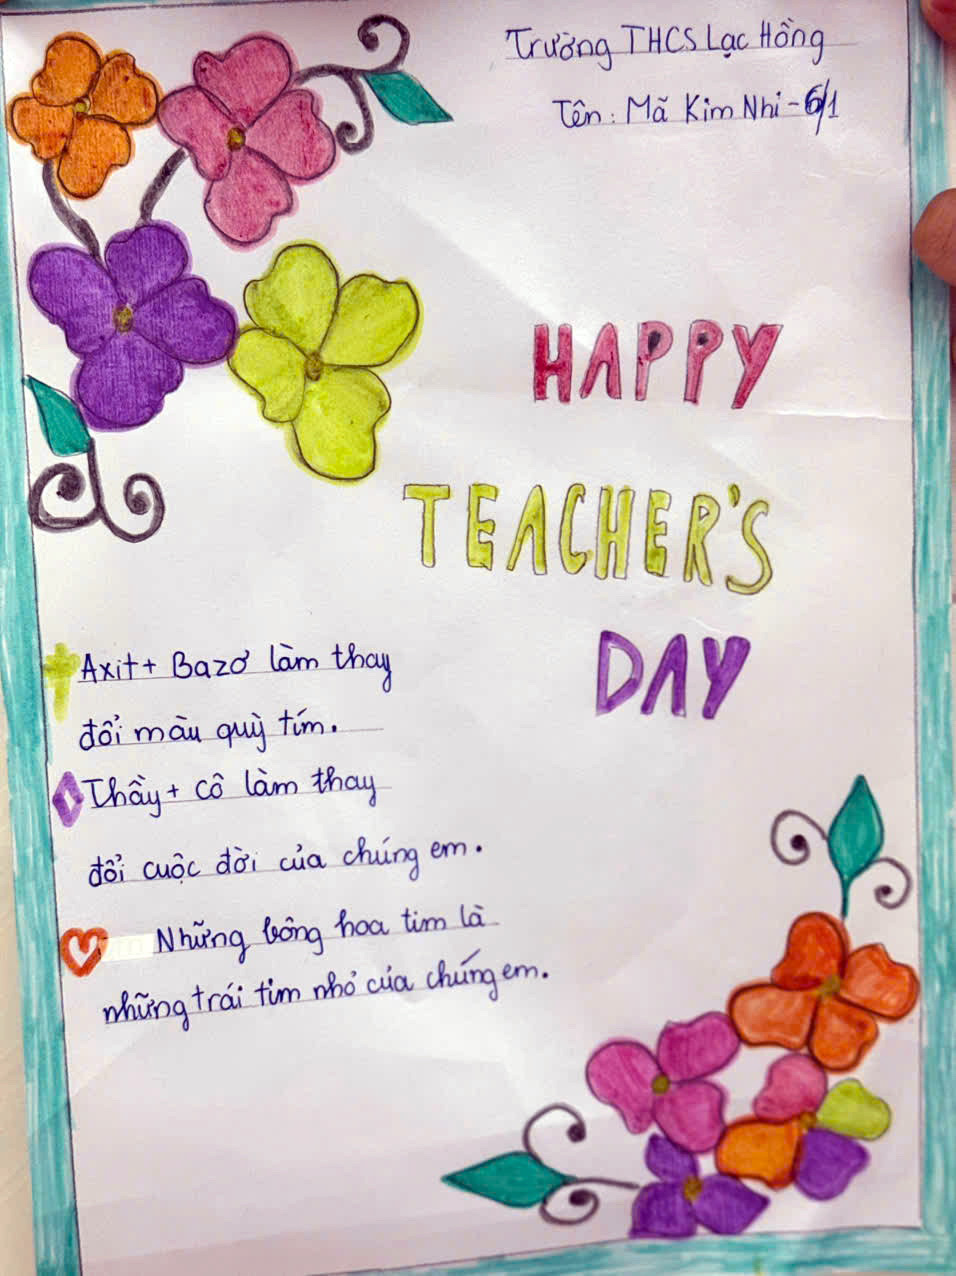 Trường THCS Lạc Hồng
Tên: Mã Kim Nhi - 6/1
HAPPY
TEACHER'S
DAY
Axit + Bazơ làm thay
đổi màu quỳ tím.
Thầy + cô làm thay
đổi cuộc đời của chúng em.
Những bông hoa tim là
những trái tim nhỏ của chúng em.